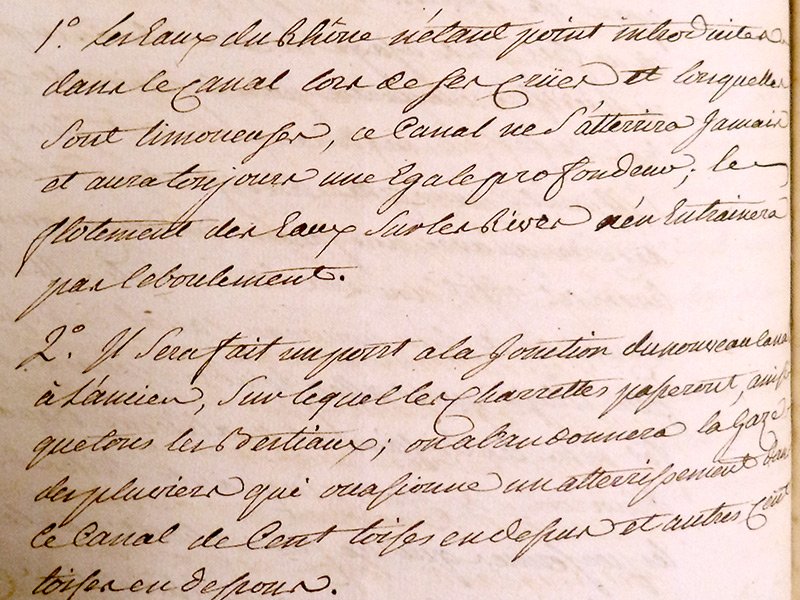 1.° les Eaux du Rhône n'étant point introduites
dans le Canal lors de ses Crües et lorsquelles
sont limoneuses, ce Canal ne s'atterrira Jamais
et aura toujours une Egale profondeur; le
flotement des Eaux sur les Rives n'en Entrainera
pas leboulement.
2.° Il sera fait un pont a la Jonction du nouveau Canal
à L'ancien, sur lequel les Charrettes passeront, ainsi
que tous les Bestiaux; on abandonnera la Gaze
des pluviers qui occasionne un atterrissement dans
le Canal de Cent toises en dessus et autres Cent
toises en dessous.